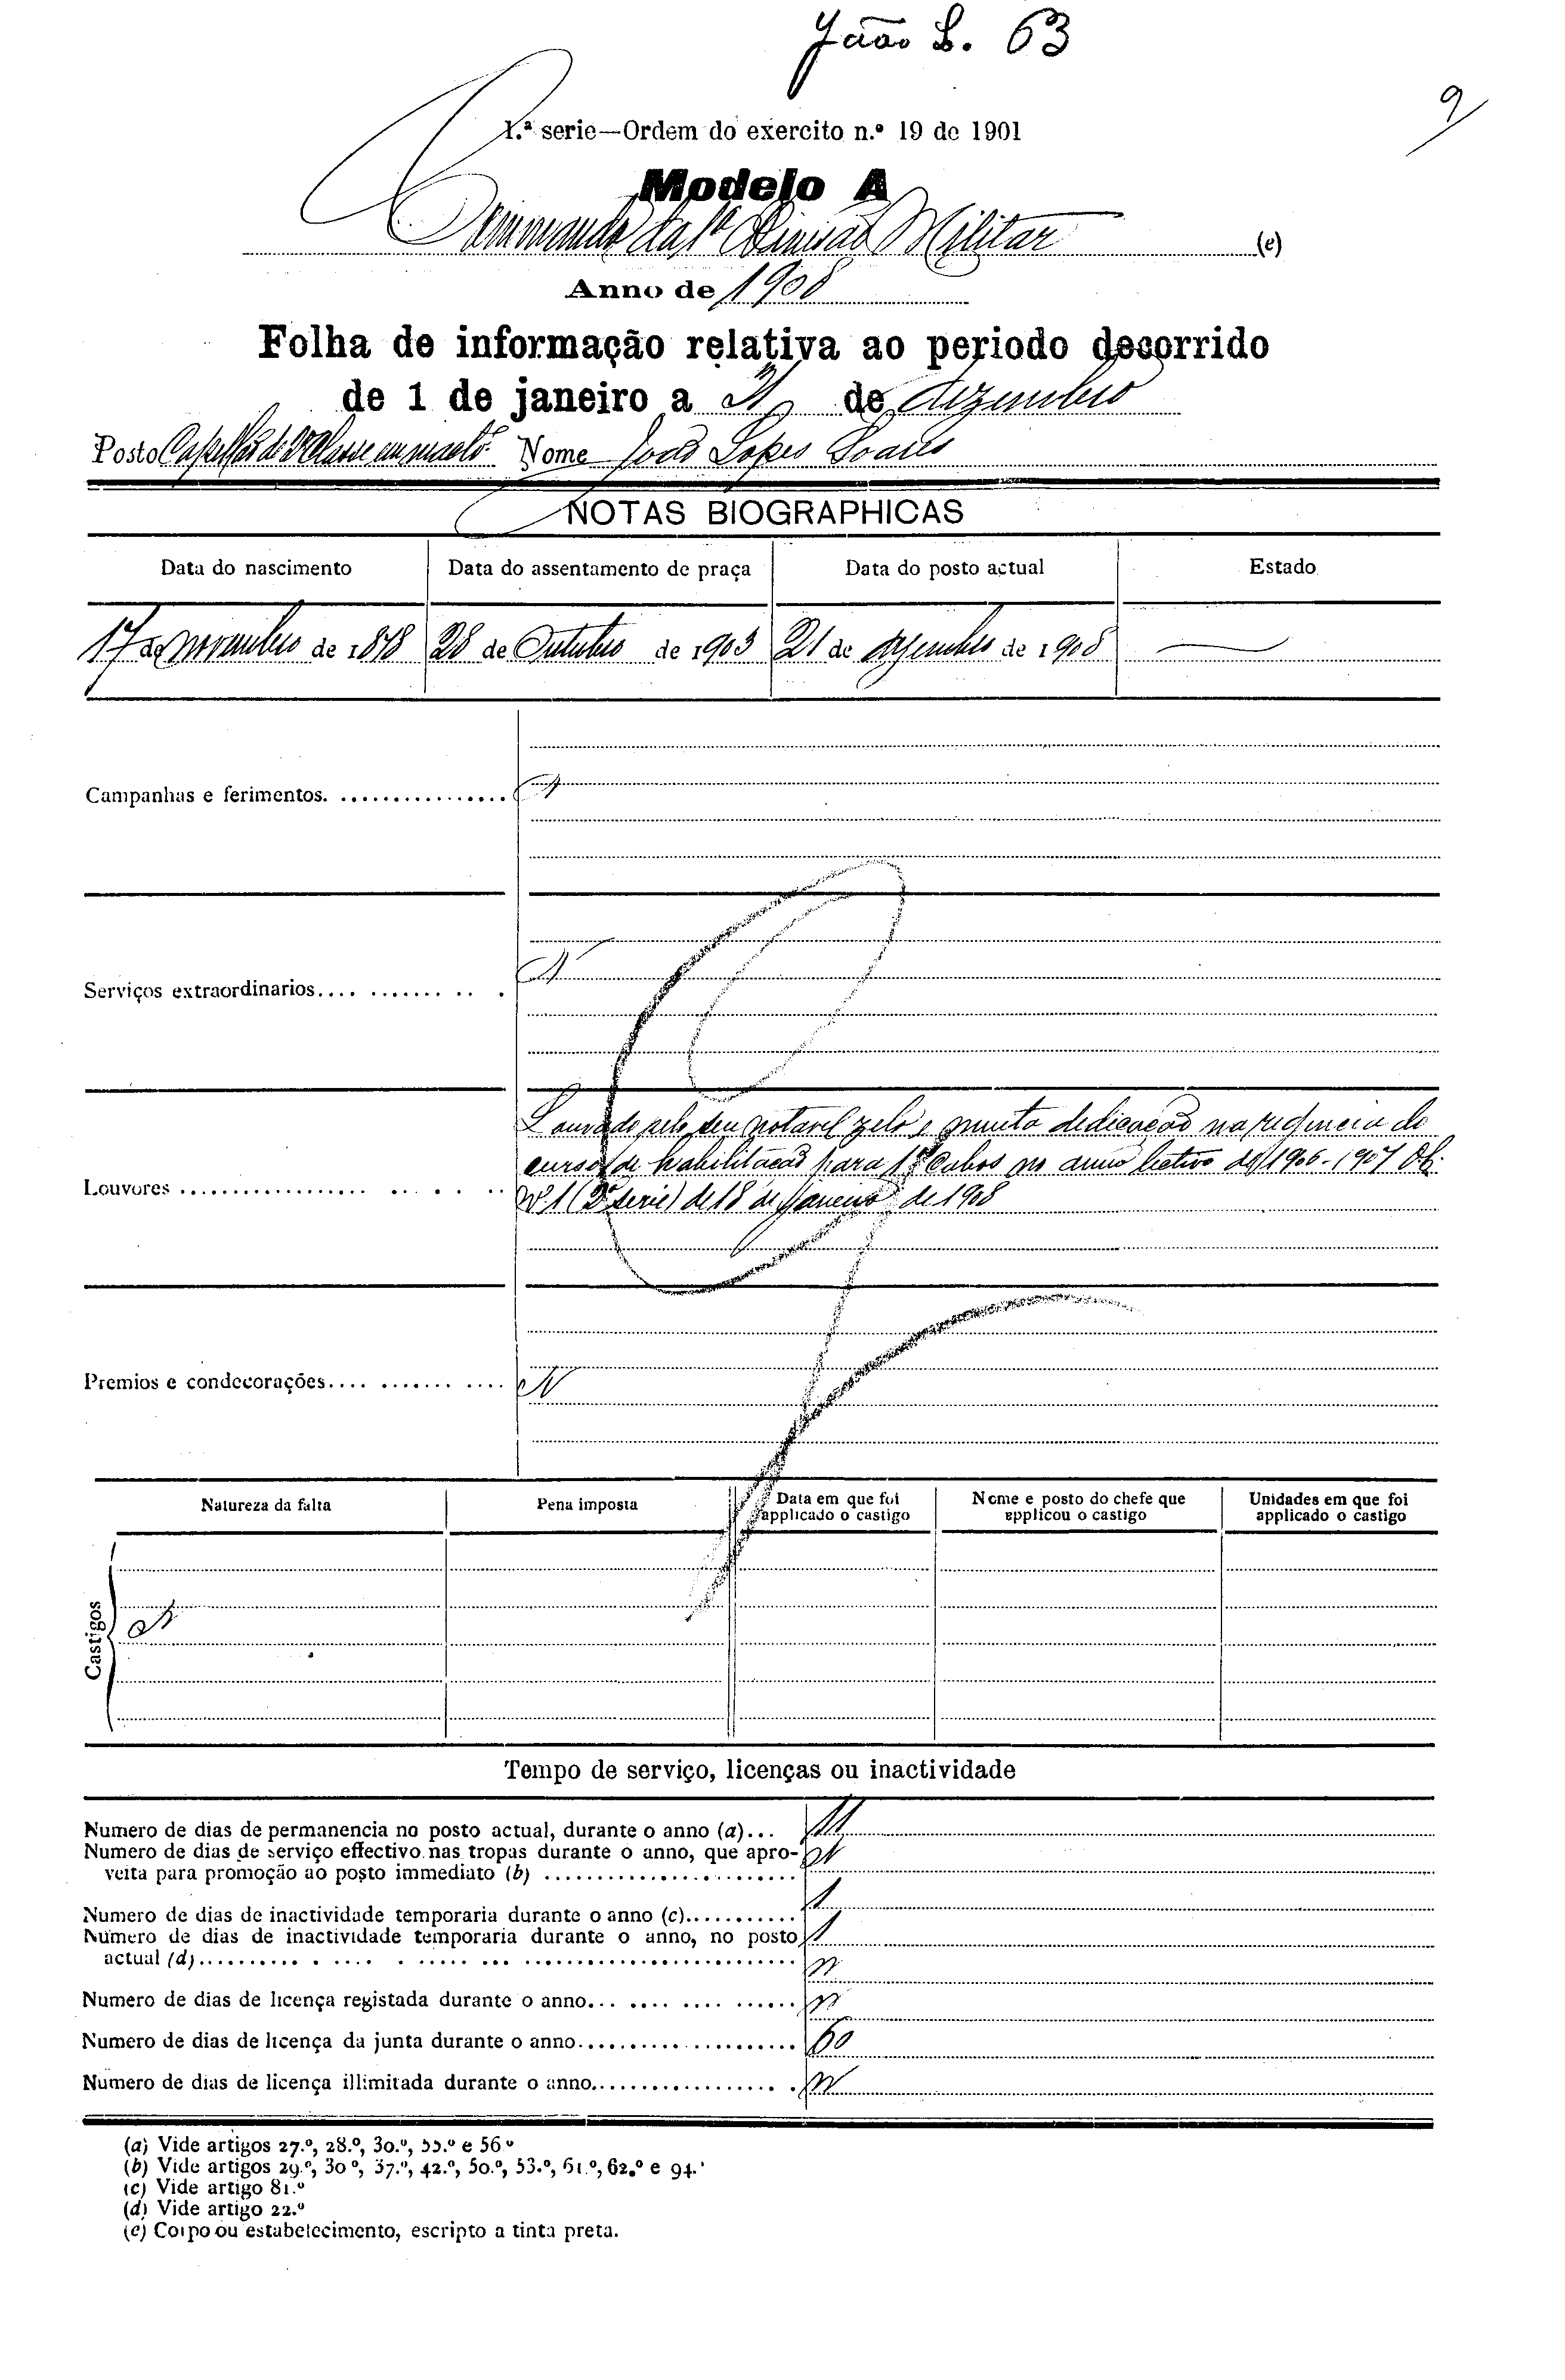 João L. 63
9
1.ª serie—Ordem do exercito n.º 19 de 1901
Modelo A
Commando da 1ª Divisão Militar (e)
Anno de 1908
Folha de informação relativa ao periodo decorrido
de 1 de janeiro a 31 de dezembro
Posto Capellão de 2ª Classe em inactº Nome João Lopes Soares
NOTAS BIOGRAPHICAS
Data do nascimento Data do assentamento de praça Data do posto actual Estado
17 de novembro de 1878 28 de Outubro de 1903 21 de dezembro de 1908
Campanhas e ferimentos. ................
Serviços extraordinarios.... ....... .. .
Louvado pelo seu notavel zelo e muita dedicação na regencia do
curso de habilitação para 1os Cabos no anno lectivo de 1906-1907
Louvores ................. ... . . ..
Nº 1 (2ª serie) de 18 de janeiro de 1908
Premios e condecorações.... ....... .... N
Natureza da falta Pena imposta Data em que foi applicado o castigo Nome e posto do chefe que applicou o castigo Unidades em que foi applicado o castigo
Castigos N
Tempo de serviço, licenças ou inactividade
Numero de dias de permanencia no posto actual, durante o anno (a)... 11
Numero de dias de serviço effectivo nas tropas durante o anno, que apro-
veita para promoção ao posto immediato (b) ........................
Numero de dias de inactividade temporaria durante o anno (c)...........
Numero de dias de inactividade temporaria durante o anno, no posto
actual (d).......... . .... . ..... ... ..........................
Numero de dias de licença registada durante o anno... .... .... ......
Numero de dias de licença da junta durante o anno..................... 60
Numero de dias de licença illimitada durante o anno.................. .
(a) Vide artigos 27.º, 28.º, 30.º, 55.º e 56.º
(b) Vide artigos 29.º, 30º, 37.º, 42.º, 50.º, 53.º, 61.º, 62.º e 94.º
(c) Vide artigo 81.º
(d) Vide artigo 22.º
(e) Corpo ou estabelecimento, escripto a tinta preta.